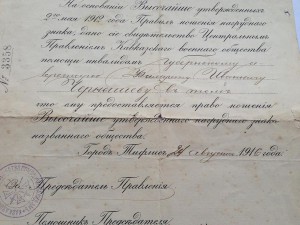 На основанiи Высочайше утвержденныхъ
9го мая 1912 года Правилъ ношенiя нагруднаго
знака, дано сiе свидѣтельство Центральнымъ
Правленiемъ Кавказскаго военнаго общества
помощи инвалидамъ Губернскому
Чернышеву въ томъ
что ему предоставляется право ношенiя
Высочайше утвержденнаго нагруднаго знака
названнаго общества.
Городъ Тифлисъ, 24 августа 1916 года.
Предсѣдатель Правленiя
Помощникъ Предсѣдателя
№ 3338